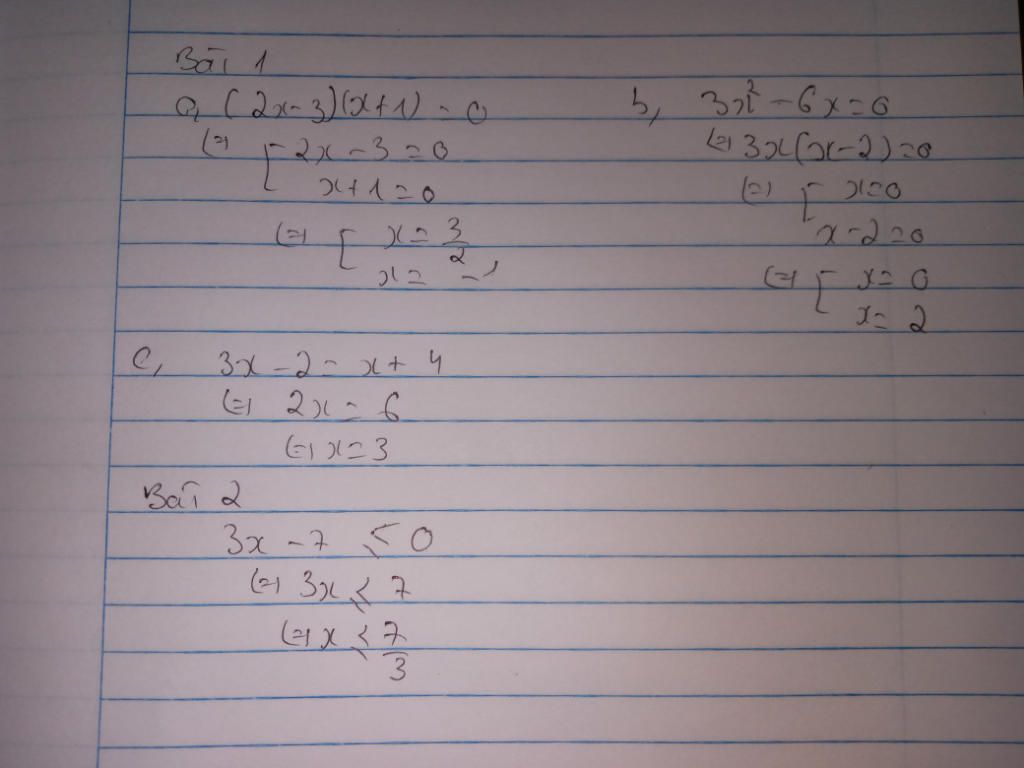 Bài 1
a, (2x-3)(x+1) = 0
(=) [ 2x - 3 = 0
x+1 = 0
(=) [ x = 3/2
x = -1
b, 3x² - 6x = 0
(=) 3x(x-2) = 0
(=) [ x=0
x-2=0
(=) [ x= 0
x= 2
c, 3x - 2 = x + 4
(=) 2x = 6
(=) x = 3
Bài 2
3x - 7 ≤ 0
(=) 3x ≤ 7
(=) x ≤ 7/3